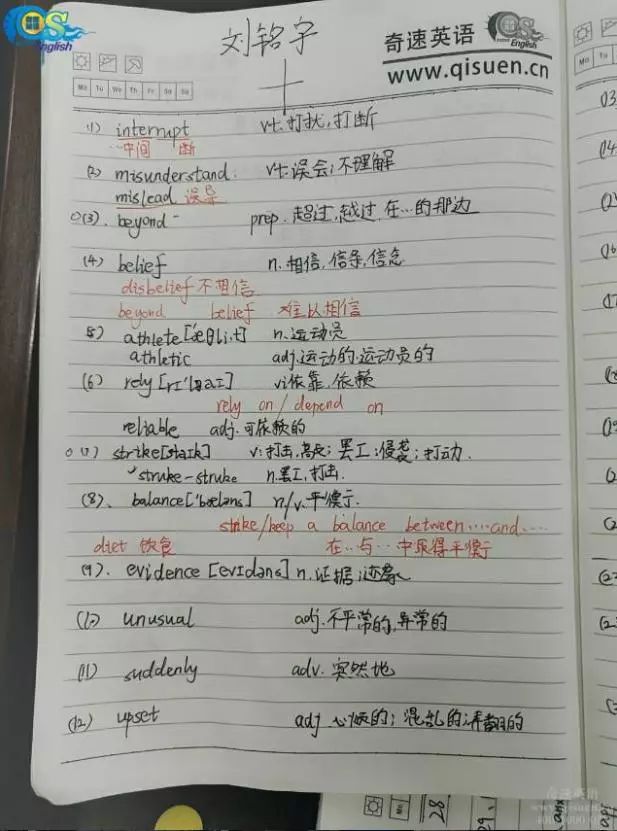 QS English
刘铭宇
奇速英语
QS English
www.qisuen.cn
Mo Tu We Th Fr Sa Su
(1) interrupt vt.打扰,打断
…中间 断
(2) misunderstand. vt.误会;不理解
mislead 误导
(3). beyond prep.超过,越过,在…的那边
(4) belief n.相信,信条,信念
disbelief 不相信
beyond belief 难以相信
(5) athlete n.运动员
athletic adj.运动的.运动员的
(6) rely [rɪ'laɪ] vi依靠.依赖
rely on / depend on
reliable adj.可依赖的
(7) strike v:打击, 罢工;侵袭;打动.
struke-struke n.罢工,打击.
(8)、balance n/v.平衡
strike/keep a balance between……and……
diet 饮食 在…与…中取得平衡
(9)、evidence n.证据;迹象
(10) unusual adj.不平常的,异常的
(11) suddenly adv.突然地
(12) upset adj 心烦的;混乱的;弄翻的
奇速英语